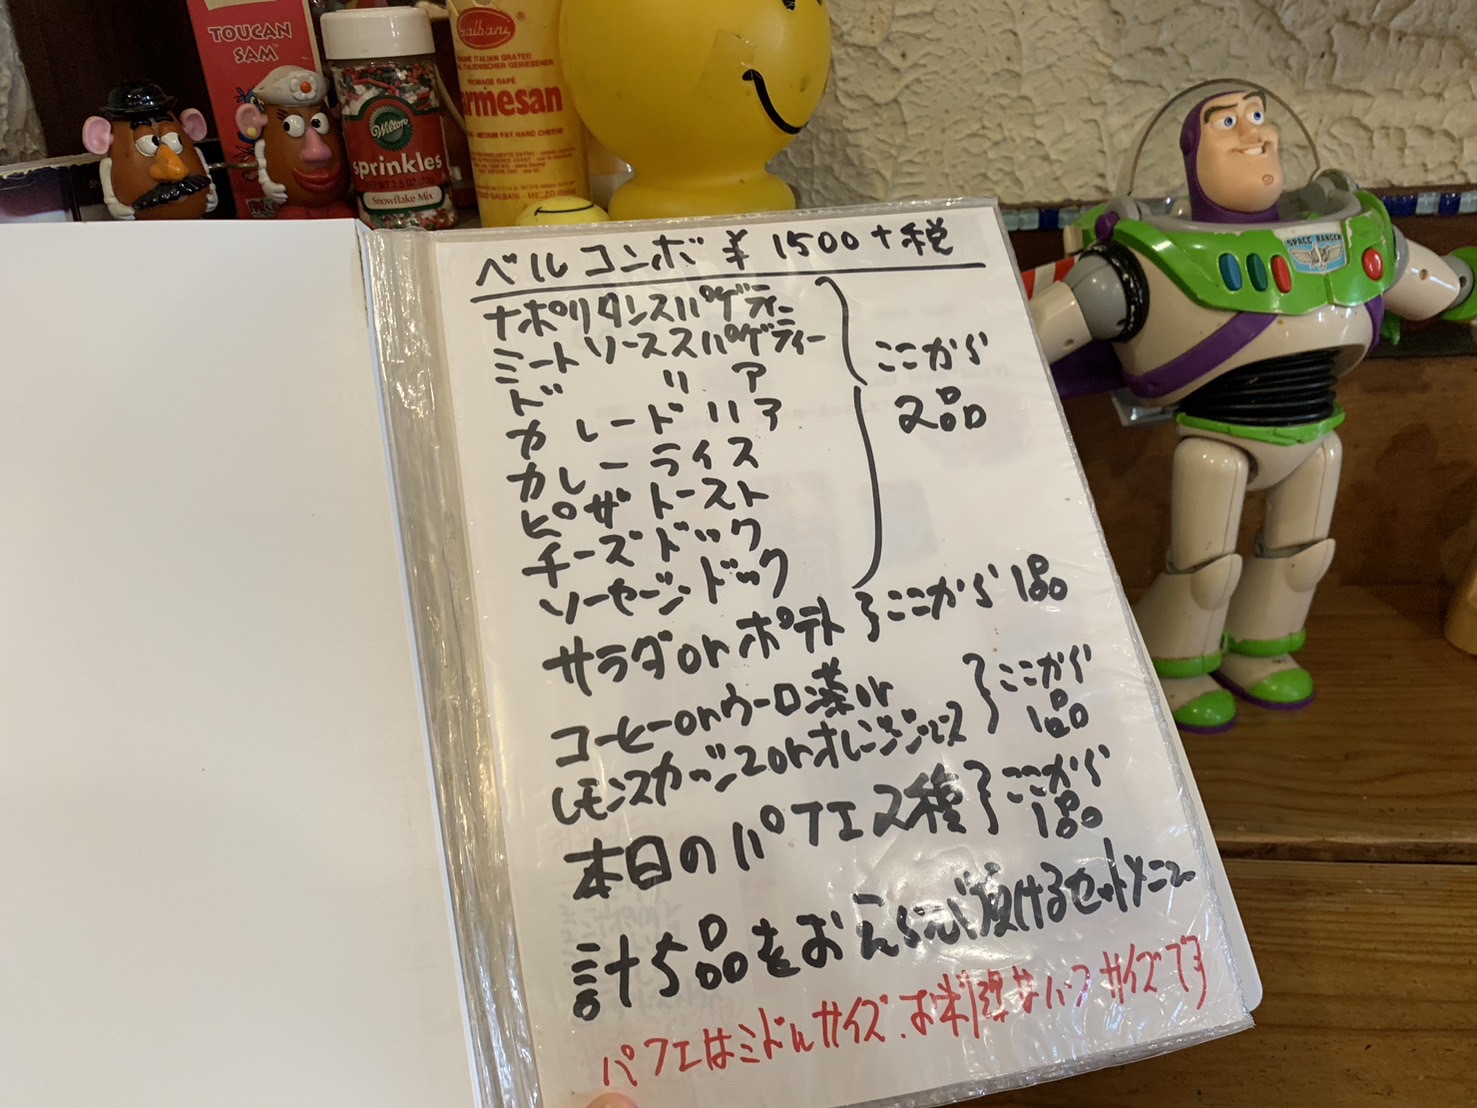 TOUCAN
SAM™
Galbani®
GENUINE ITALIAN GRATED
FROMAGE RAPÉ
armesan
MEDIUM FAT HARD CHEESE
Wilton
sprinkles
Snowflake Mix
SPACE RANGER
ベルコンボ ¥1500+税
ナポリタンスパゲティー
ミートソーススパゲティー
ドリア
カレードリア
カレーライス
ピザトースト
チーズドック
ソーセージドック
ここから
2品
サラダorポテト}ここから1品
コーヒーorウーロン茶or
レモンスカッシュorオレンジジュース
ここから
1品
本日のパフェ2種}ここから
1品
計5品をお選び頂けるセットメニュー
パフェはミドルサイズ、お料理はハーフサイズです